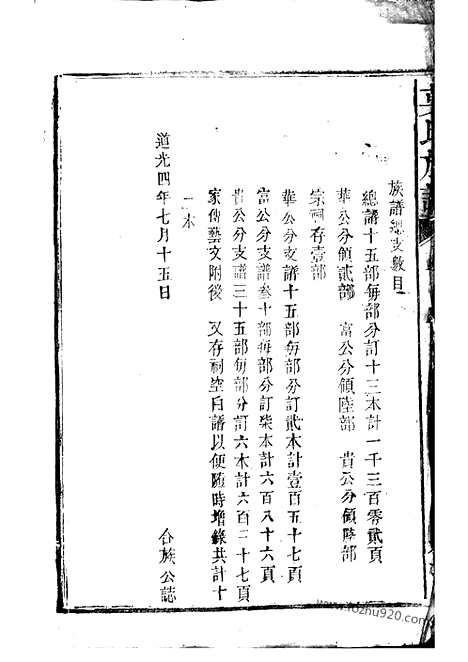 族譜總支數目
總譜十五部每部分訂十三本計一千三百零貳頁
華公分領貳部　富公分領陸部　貴公分領陸部
宗祠存壹部
華公分支譜十五部每部分訂貳本計壹百五十七頁
富公分支譜叁十部每部分訂柒本計六百八十六頁
貴公分支譜三十五部每部分訂六本計六百二十七頁
家傳藝文附後　又存祠空白譜以便隨時增錄共計十
二本
道光四年七月十五日
合族公誌
氏族譜
www.fozhu920.com